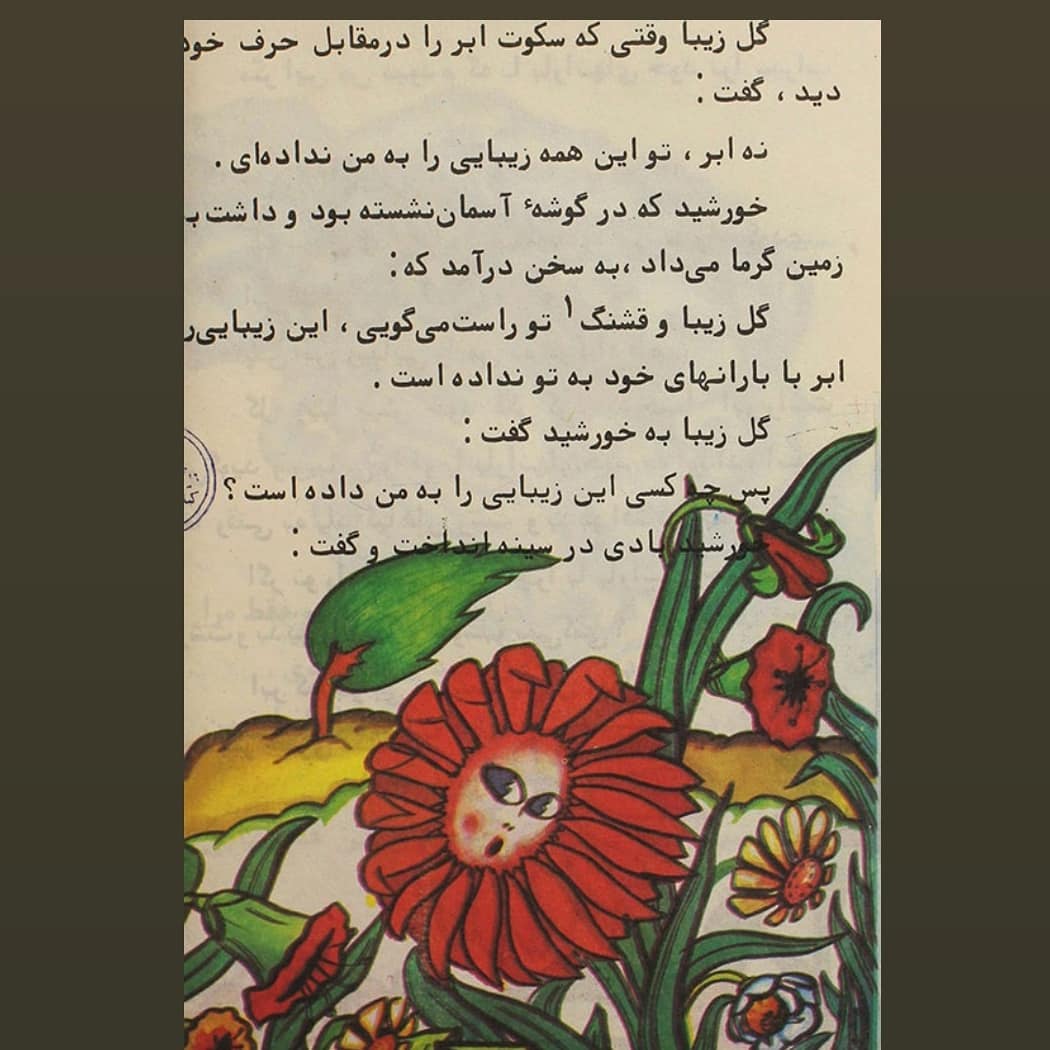 گل زیبا وقتی که سکوت ابر را درمقابل حرف خود
دید ، گفت :
نه ابر ، تو این همه زیبایی را به من نداده‌ای .
خورشید که در گوشهٔ آسمان‌نشسته بود و داشت ب
زمین گرما می‌داد ،به سخن درآمد که :
گل زیبا و قشنگ ! تو راست‌می‌گویی ، این زیبایی‌ر
ابر با بارانهای خود به تو نداده است .
گل زیبا به خورشید گفت :
پس چه کسی این زیبایی را به من داده است ؟
خورشید بادی در سینه انداخت و گفت :